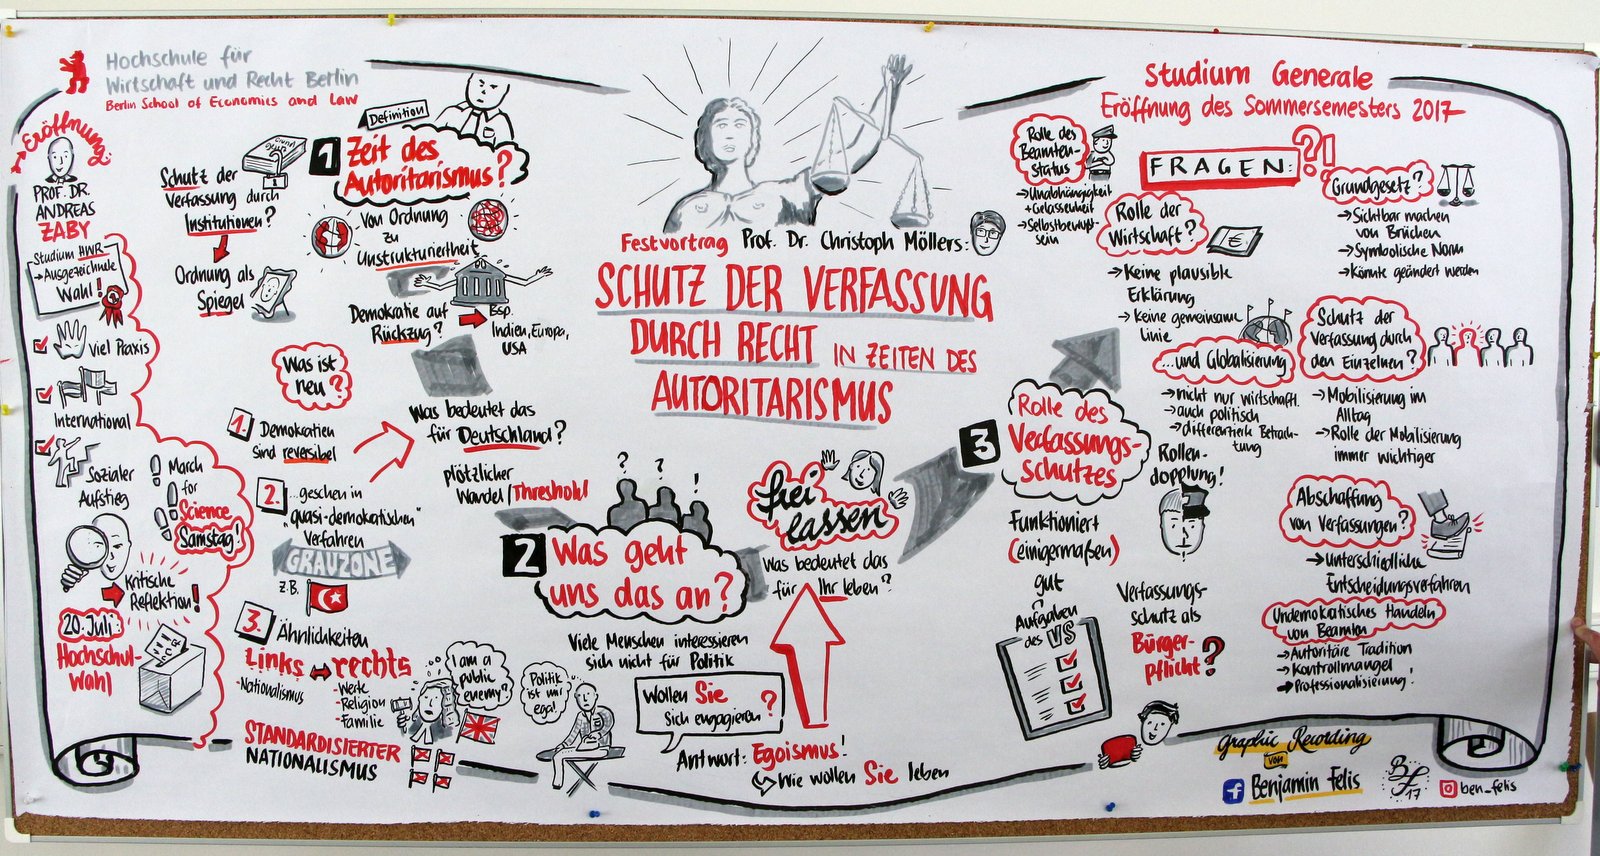 Hochschule für
Wirtschaft und Recht Berlin
Berlin School of Economics and Law
Eröffnung:
PROF. DR.
ANDREAS
ZABY
Studium HWR
→ Ausgezeichnete
Wahl!
Viel Praxis
International
Sozialer
Aufstieg
March
for
Science
Samstag!
Kritische
Reflektion!
20. Juli:
Hochschul-
wahl
Definition
1 Zeit des
Autoritarismus?
Schutz der
Verfassung durch
Institutionen?
Ordnung als
Spiegel
Von Ordnung
zu
Unstrukturiertheit
Demokratie auf
Rückzug?
Bsp.
Indien, Europa,
USA
Was ist
neu?
1. Demokratien
sind reversibel
2. ...geschen in
"quasi-demokratischen"
Verfahren
GRAUZONE
z.B.
3. Ähnlichkeiten
Links ↔ rechts
- Nationalismus
- Werte
- Religion
- Familie
STANDARDISIERTER
NATIONALISMUS
I am a
public
enemy?
Was bedeutet das
für Deutschland?
plötzlicher
Wandel/Threshold
? ? !
2 Was geht
uns das an?
Viele Menschen interessieren
sich nicht für Politik
Politik
ist mir
egal!
Wollen Sie
sich engagieren?
Antwort: Egoismus!
Wie wollen Sie leben
frei
lassen
Was bedeutet das
für Ihr leben?
Festvortrag Prof. Dr. Christoph Möllers:
SCHUTZ DER VERFASSUNG
DURCH RECHT IN ZEITEN DES
AUTORITARISMUS
3 Rolle des
Verfassungs-
schutzes
Funktioniert
(einigermaßen)
gut
Aufgaben
des VS
Rollen-
dopplung!
Verfassungs-
schutz als
Bürger-
pflicht?
Studium Generale
Eröffnung des Sommersemesters 2017
FRAGEN: ?!
Rolle des
Beamten-
status
→ Unabhängigkeit
+ Gelassenheit
→ Selbstbewusst-
sein
Rolle der
Wirtschaft?
€
→ Keine plausible
Erklärung
→ Keine gemeinsame
Linie
...und Globalisierung
→ nicht nur wirtschaftl.
→ auch politisch
→ differenzierte Betrach-
tung
Grundgesetz?
→ Sichtbar machen
von Brüchen
→ Symbolische Norm
→ Könnte geändert werden
Schutz der
Verfassung durch
den Einzelnen?
→ Mobilisierung im
Alltag
→ Rolle der Mobilisierung
immer wichtiger
Abschaffung
von Verfassungen?
→ Unterschiedliche
Entscheidungsverfahren
Undemokratisches Handeln
von Beamten
→ Autoritäre Tradition
→ Kontrollmangel
→ Professionalisierung!
Graphic Recording
von
f Benjamin Felis
BF
17
ben_felis